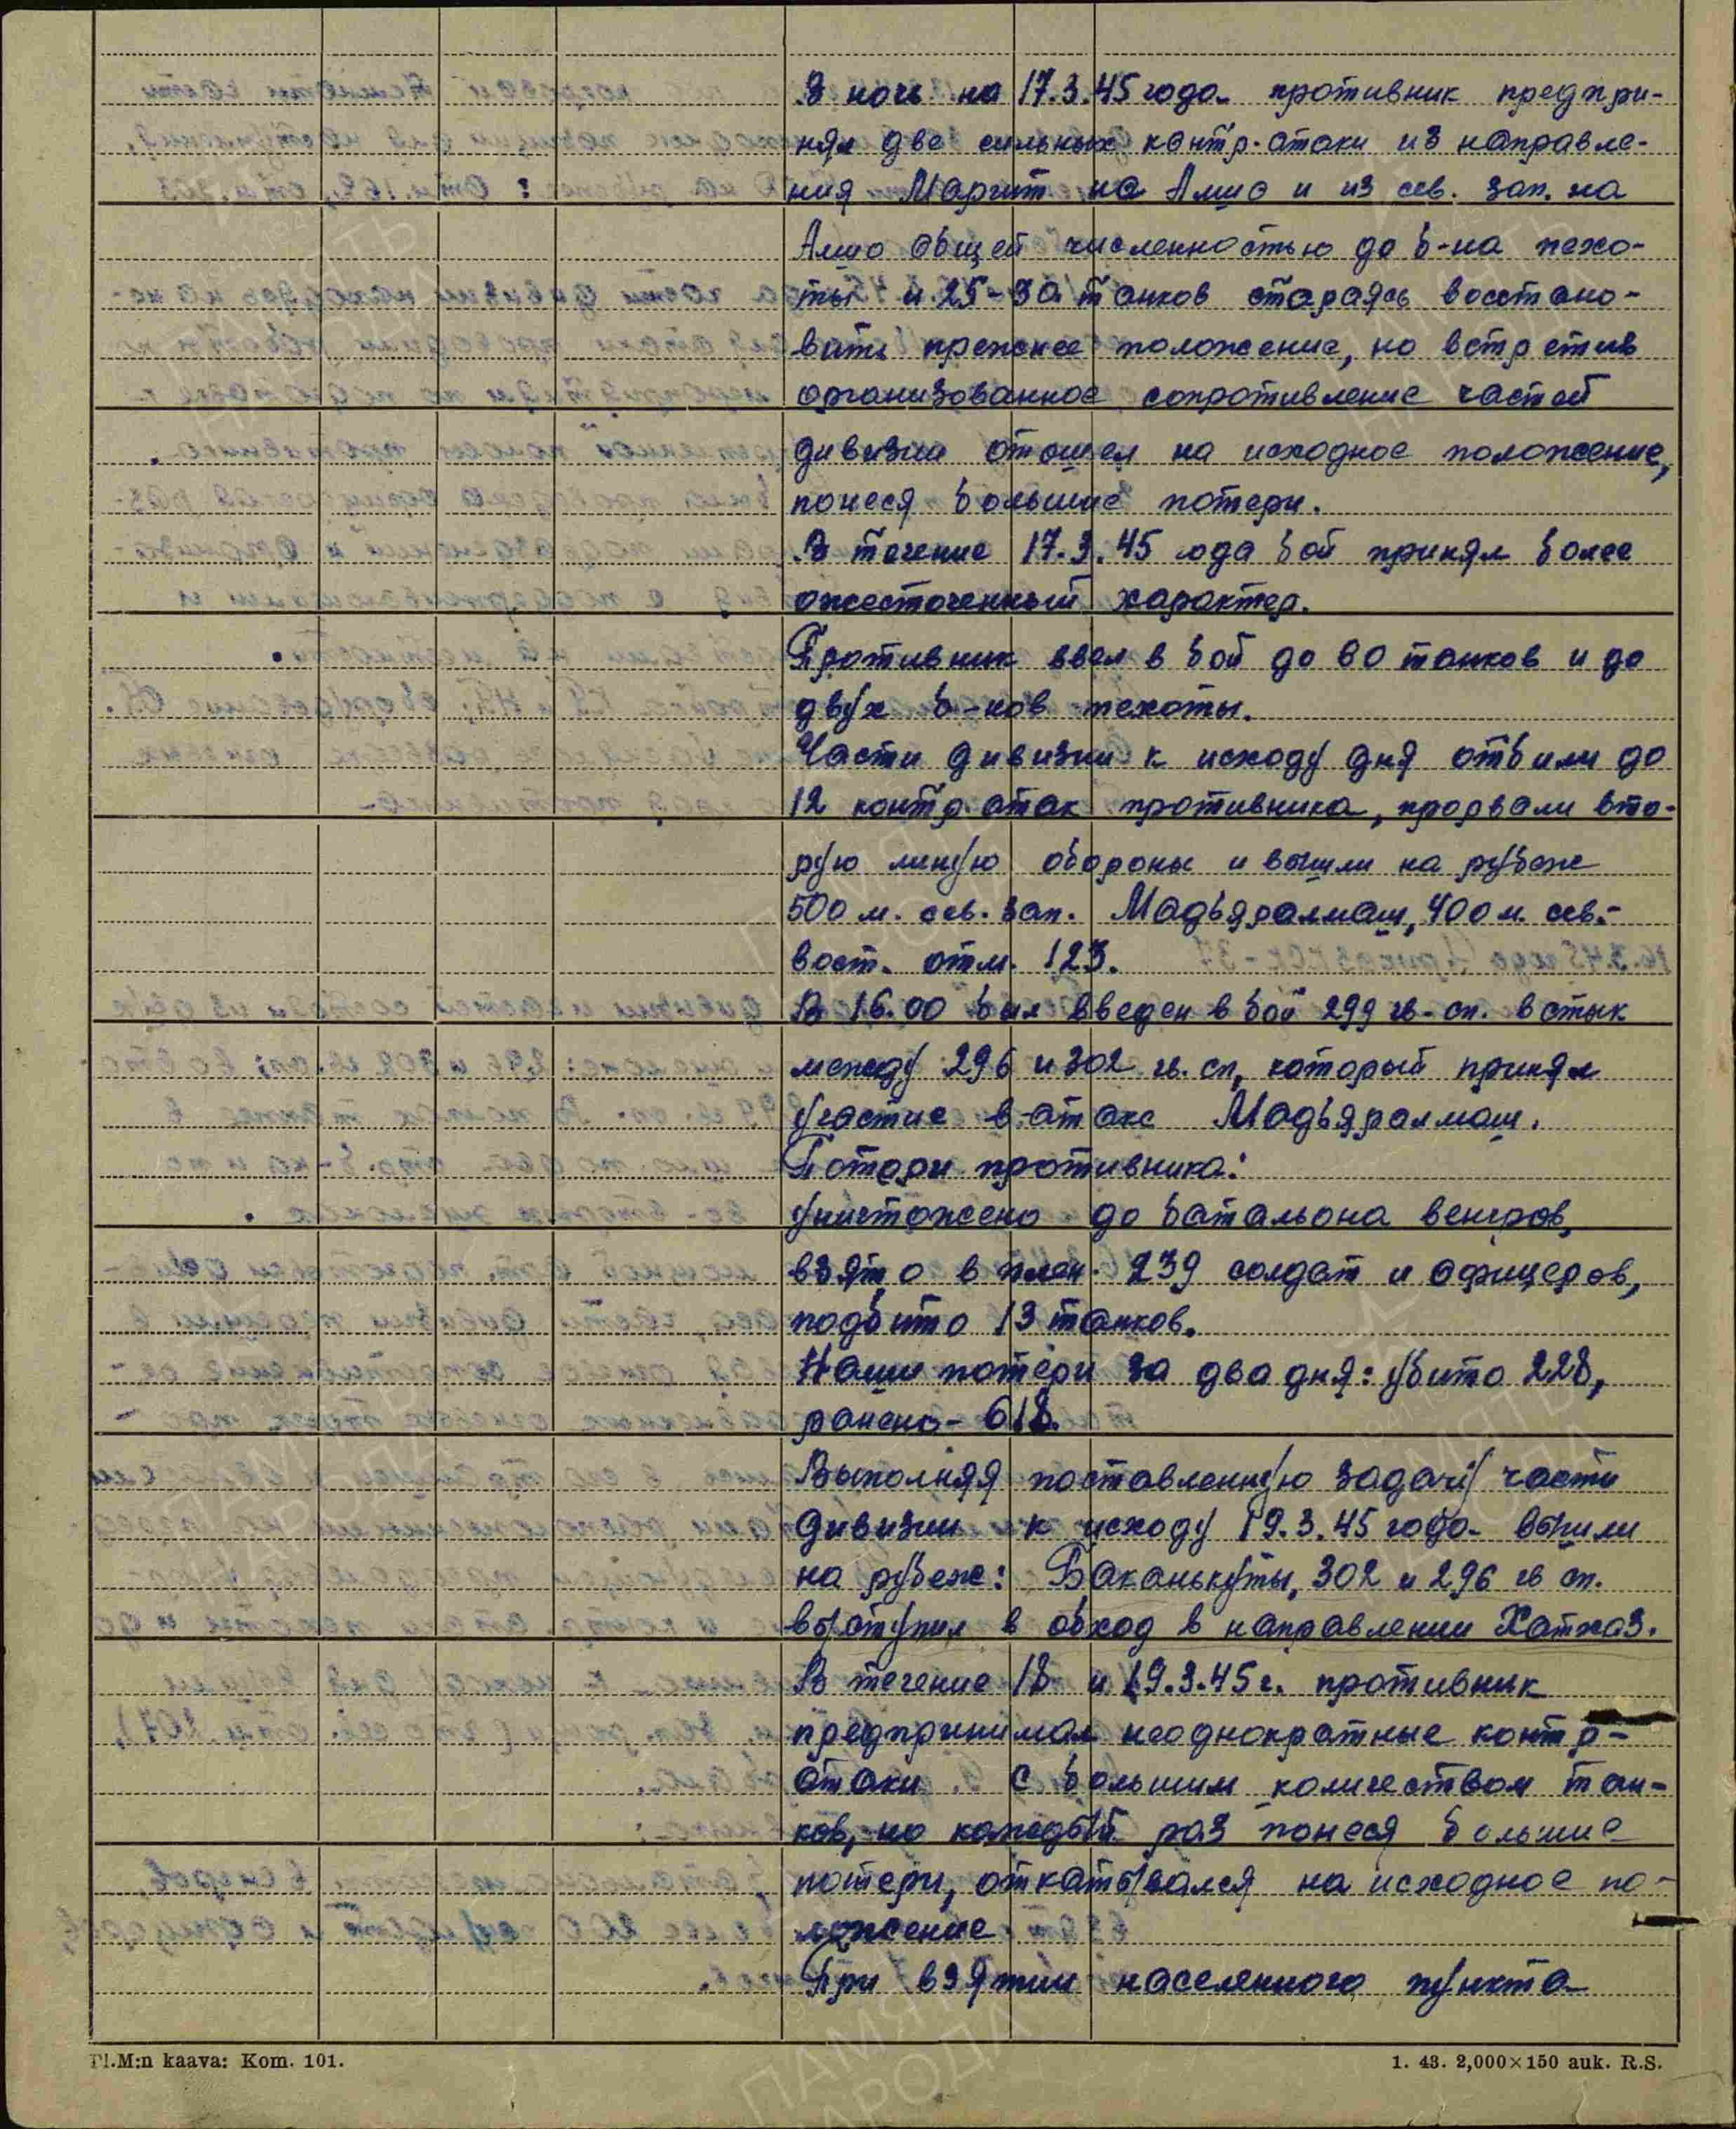 В ночь на 17.3.45 года противник предпри-
нял две сильных контр-атаки из направле-
ния Маргит на Алшо и из сев. зап. на
Алшо общей численностью до б-на пехо-
ты и 25-30 танков стараясь восстано-
вить прежнее положение, но встретив
организованное сопротивление частей
дивизии отошел на исходное положение,
понеся большие потери.
В течение 17.3.45 года бой принял более
ожесточенный характер.
Противник ввел в бой до 60 танков и до
двух б-нов пехоты.
Части дивизии к исходу дня отбили до
12 контр.атак противника, прорвали вто-
рую линую обороны и вышли на рубеж
500 м. сев. зап. Мадьяралмаш, 400 м. сев.-
вост. отм. 123.
В 16.00 был введен в бой 299 гв. сп. в стык
между 296 и 302 гв. сп, который принял
участие в атаке Мадьяралмаш.
Потери противника:
уничтожено до батальона венгров,
взято в плен 239 солдат и офицеров,
подбито 13 танков.
Наши потери за два дня: убито 228,
ранено - 618.
Выполняя поставленную задачу части
дивизии к исходу 19.3.45 года вышли
на рубеж: Баканькуты, 302 и 296 гв сп.
выступил в обход в направлении Хатхаз.
В течение 18 и 19.3.45 г. противник
предпринимал неоднократные контр-
атаки с большим количеством тан-
ков, но каждый раз понеся большие
потери, откатывался на исходное по-
ложение
При взятии населенного пункта
Pl.M:n kaava: Kom. 101.
1. 43. 2,000×150 auk. R.S.